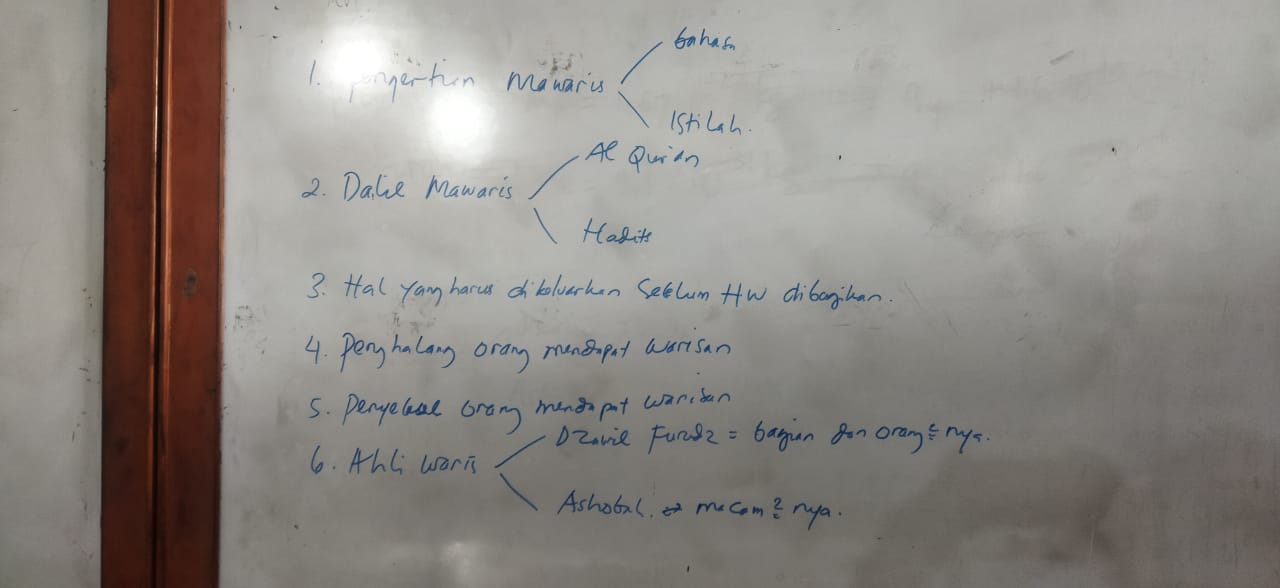 bahasa
1. Pengertian Mawaris
Istilah.
Al Qur'an
2. Dalil Mawaris
Hadits
3. Hal yang harus dikeluarkan sebelum HW dibagikan.
4. Penghalang orang mendapat warisan
5. Penyebab orang mendapat warisan
Dzawil Furudz = bagian dan orang2nya.
6. Ahli waris
Ashobah. → macam2nya.